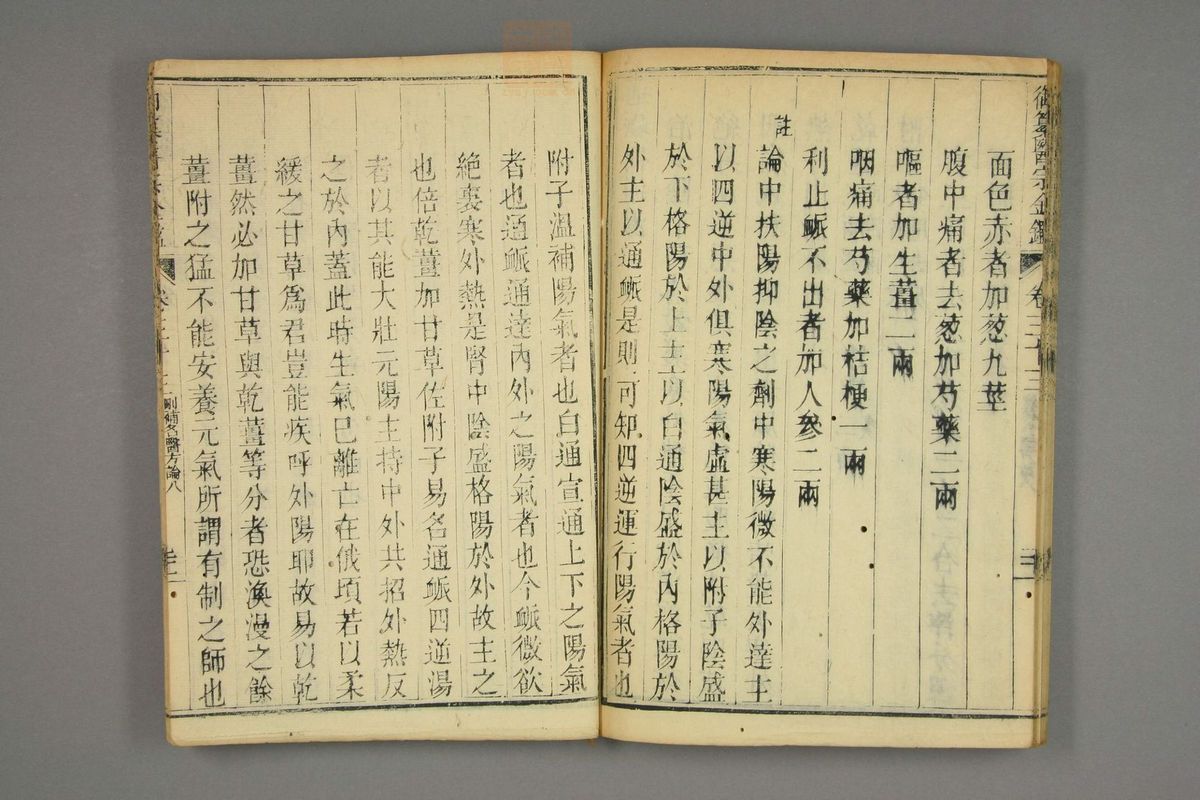 御纂醫宗金鑑 卷三十三
面色赤者加葱九莖
腹中痛者去葱加芍藥二兩
嘔者加生薑二兩
咽痛去芍藥加桔梗一兩
利止䘑不出者加人參二兩
註
論中扶陽抑陰之劑中寒陽微不能外達主
以四逆中外俱寒陽氣虛甚主以附子陰盛
於下格陽於上主以白通陰盛於內格陽於
外主以通䘑是則可知四逆運行陽氣者也
附子溫補陽氣者也白通宣通上下之陽氣
者也通䘑通達內外之陽氣者也今䘑微欲
絶裏寒外熱是腎中陰盛格陽於外故主之
也倍乾薑加甘草佐附子易名通䘑四逆湯
者以其能大壯元陽主持中外共招外熱反
之於內蓋此時生氣已離亡在俄頃若以柔
緩之甘草爲君豈能疾呼外陽耶故易以乾
薑然必加甘草與乾薑等分者恐渙漫之餘
薑附之猛不能安養元氣所謂有制之師也
刪補名醫方論八